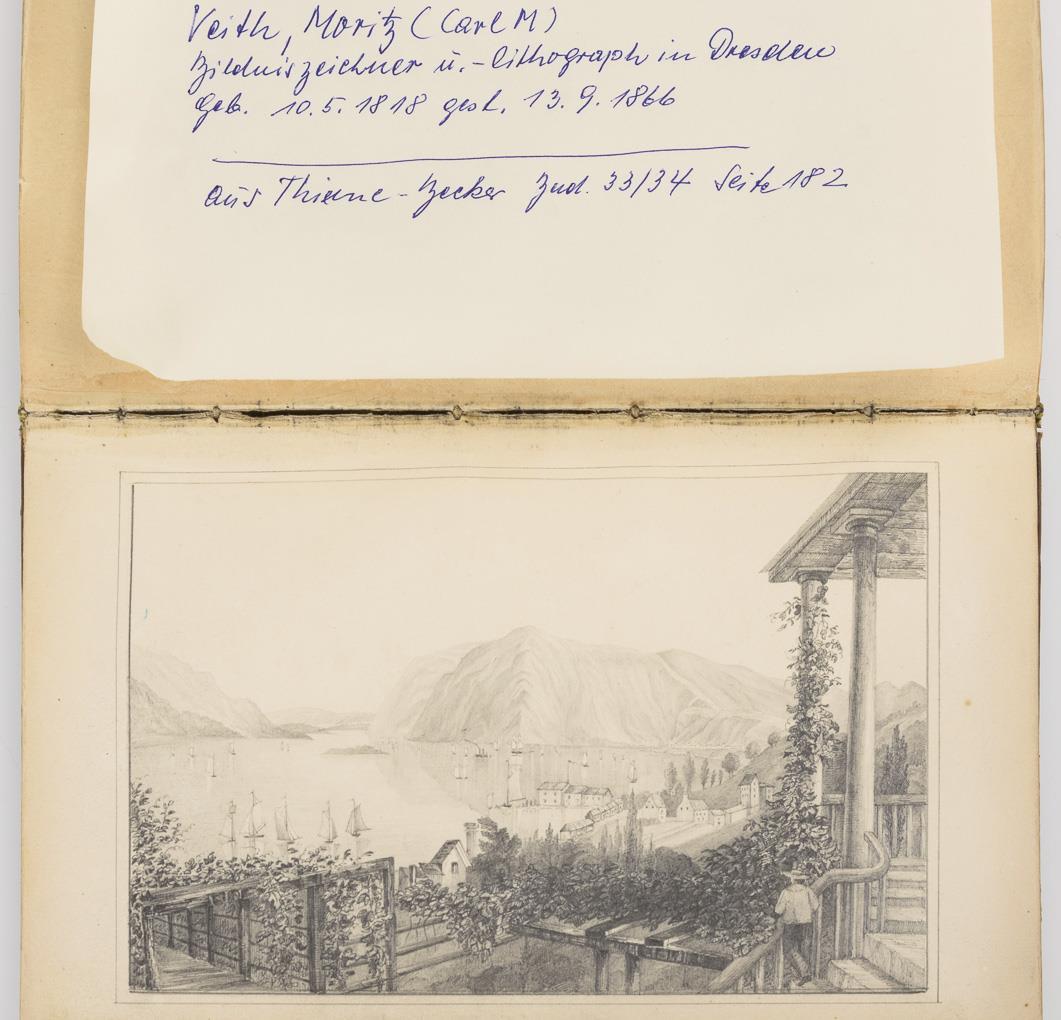 Veith, Moritz (Carl M)
Bildniszeichner u.-Lithograph in Dresden
geb. 10.5.1818 gest. 13.9.1866
aus Thieme-Becker Bnd. 33/34 Seite 182